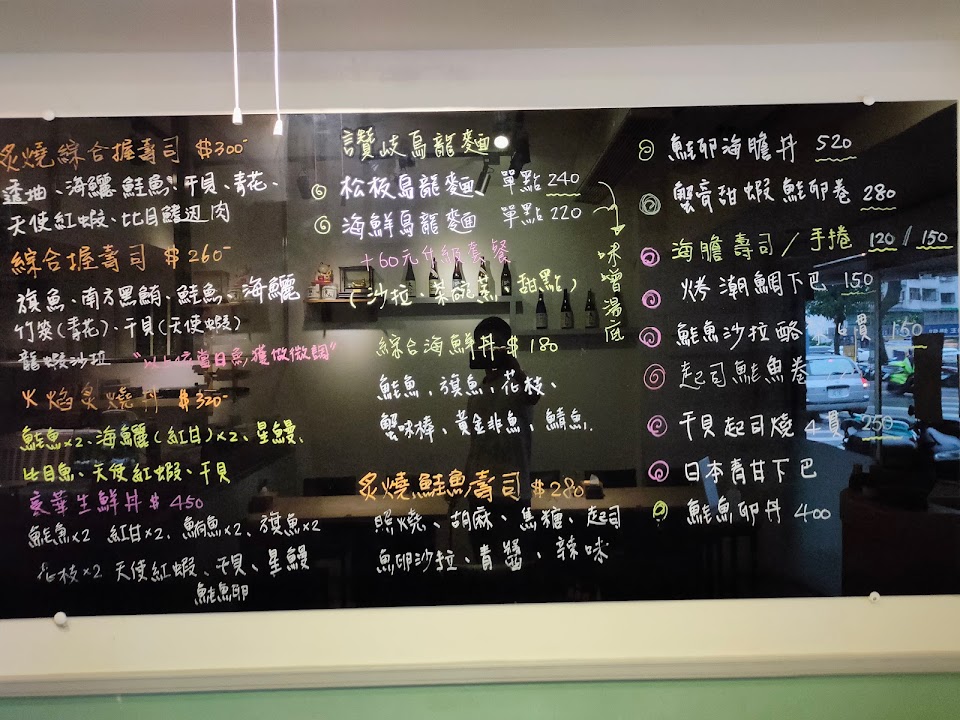 炙燒綜合握壽司 $300-
透抽、海鱺、鮭魚、干貝、青花、
天使紅蝦、比目鰭边肉
綜合握壽司 $260-
旗魚、南方黑鮪、鮭魚、海鱺
竹筴(青花)、干貝(天使蝦)
龍蝦沙拉
當日魚獲做微調"
火焰炙燒丼 $320-
鮭魚×2、海鱺(紅甘)×2、星鰻、
比目魚、天使紅蝦、干貝
豪華生鮮丼 $450
鮭魚×2 紅甘×2、鮪魚×2、旗魚×2
花枝×2 天使紅蝦、干貝、星鰻
鮭魚卵
讚岐烏龍麵
松板烏龍麵 單點240
海鮮烏龍麵 單點220
味噌湯底
+60元升級套餐
(沙拉、茶碗蒸、甜點)
綜合海鮮丼 $180
鮭魚、旗魚、花枝、
蟹味棒、黃金非魚、鯖魚.
炙燒鮭魚壽司 $280-
照燒、胡麻、焦糖、起司
魚卵沙拉、青醬、辣味
鮭卵海膽丼 520
蟹膏甜蝦鮭卵卷 280
海膽壽司/手捲 120/150
烤潮鯛下巴 150
鮭魚沙拉酪 160
起司鮭魚卷
干貝起司燒4買 250
日本青甘下巴
鮭魚卵丼 400